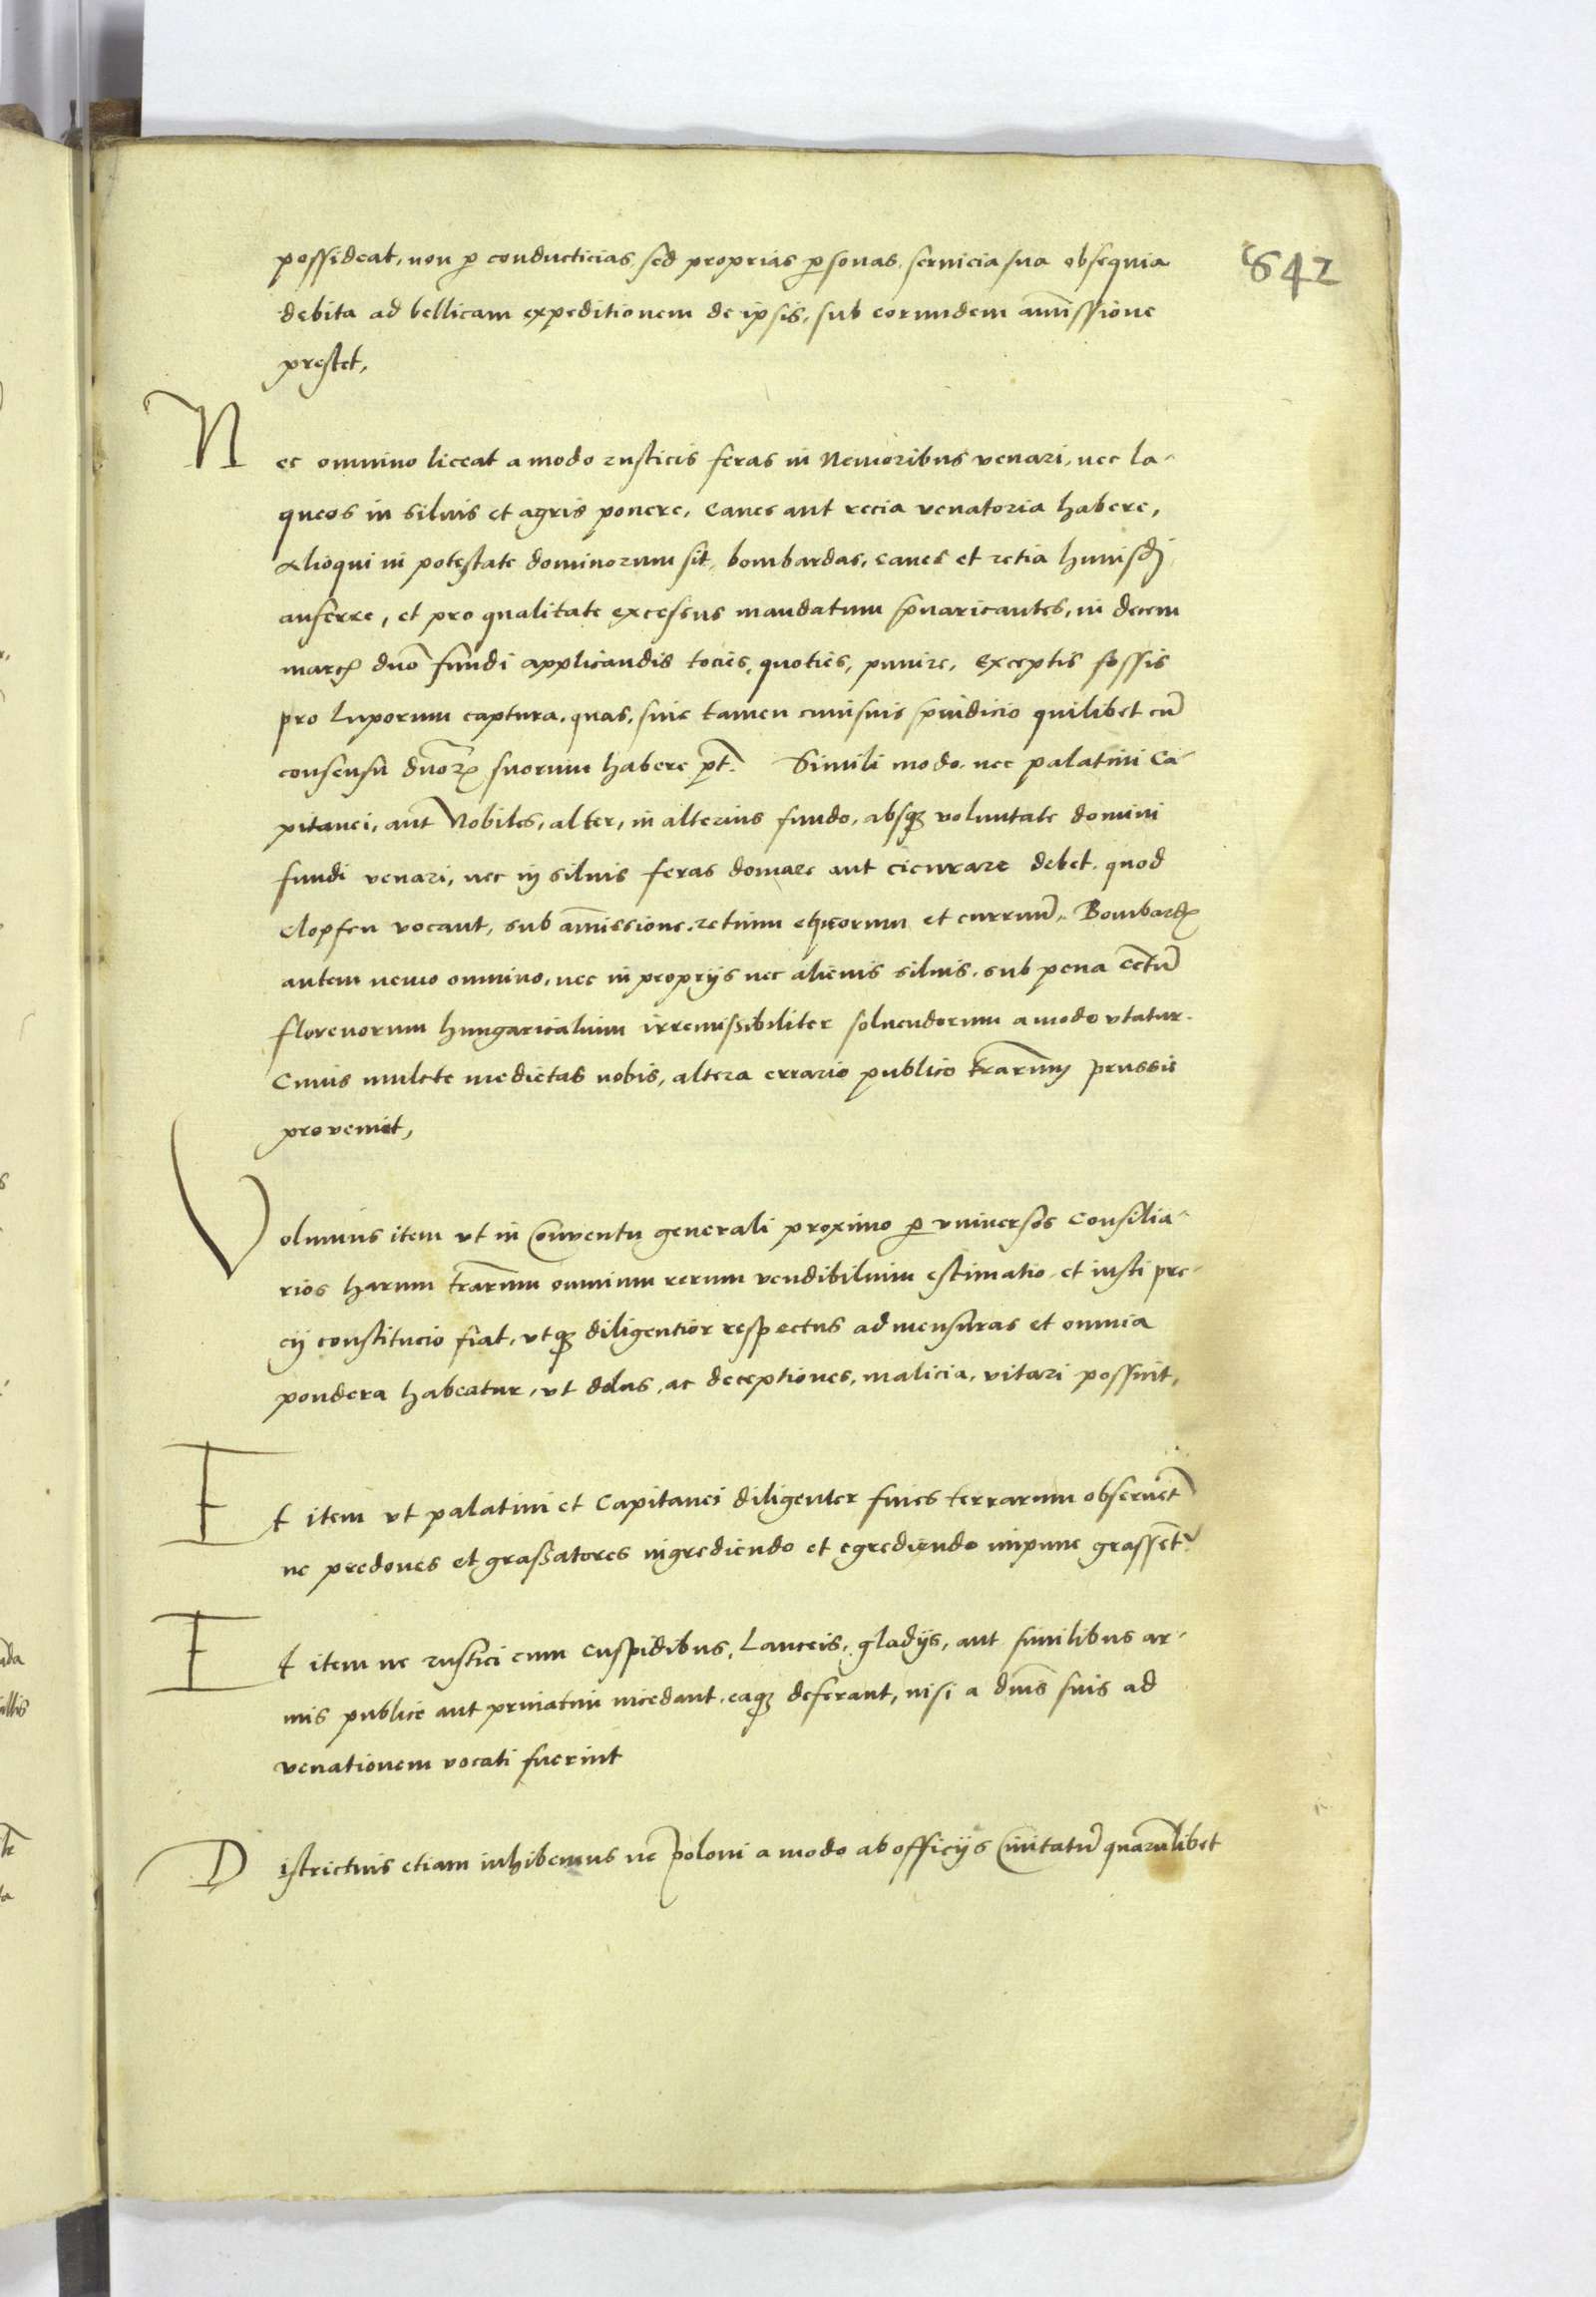 642
possideat, non ꝑ conducticias, sed proprias ꝑsonas, seruicia sua obsequia
debita ad bellicam expeditionem de ipsis, sub eorundem am̄issione
prestet,
Nec omnino liceat amodo rusticis feras in Nemoribus venari, nec la-
queos in siluis et agris ponere, Canes aut recia venatoria habere,
Alioqui in potestate dominorum sit, bombardas, canes et retia huiusd̄j
auferre, et pro qualitate excessus mandatum p̄uaricantes, in decem
marcꝭ dn̄o fundi applicandis tocies, quoties, punire, exceptis fossis
pro Luporum captura, quas, sine tamen cuiusuis p̄iudicio quilibet cū
consensu dn̄oꝝ suorum habere pt̄. Simili modo, nec palatini Ca-
pitanei, aut Nobiles, alter, in alterius fundo, absqꝫ voluntate domini
fundi venari, nec in siluis feras domare aut cicurare debet, quod
clopfen vocant, sub am̄issione, retium equorum et curruū, Bombardꝭ
autem nemo omnino, nec in proprijs nec alienis siluis, sub pena centū
florenorum hungaricalium irremissibiliter soluendorum amodo vtatur.
Cuius mulcte medietas nobis, altera errario publico tr̄arum prussie
proveniet,
Volumus item vt in Conventu generali proximo ꝑ vniuersos Consilia-
rios harum tr̄arum omnium rerum vendibilium estimatio et iusti pre-
cij constitucio fiat, vtqꝫ diligentior respectus ad mensuras et omnia
pondera habeatur, vt dolus, ac deceptiones, malicia, vitari possint,
Et item vt palatini et Capitanei diligenter fines terrarum obseruēt
ne predones et grassatores ingrediendo et egrediendo impune grassēt᷑
Et item ne rustici cum cuspidibus, Lanceis, gladijs, aut similibus ar-
mis publice aut priuatim incedant, eaqꝫ deferant, nisi a dn̄is suis ad
venationem vocati fuerint
Districtius etiam inhibemus ne Poloni amodo ab officijs Ciuitatū quarūlibet